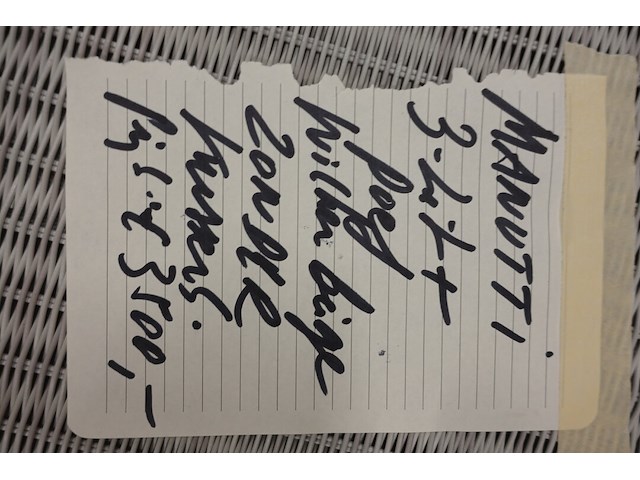 MANUTTI
3-zit +
poef
beige
ZONDER
kussens.
prijs. € 3500,-